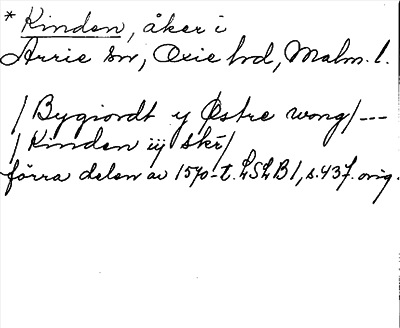 * Kinden, åker i
Arrie sn, Oxie hd, Malm. l.
/Bygiordt y Østre wong/---
/Kinden iij skr/
förra delen av 1570-t. LSLB1, s. 437. orig.